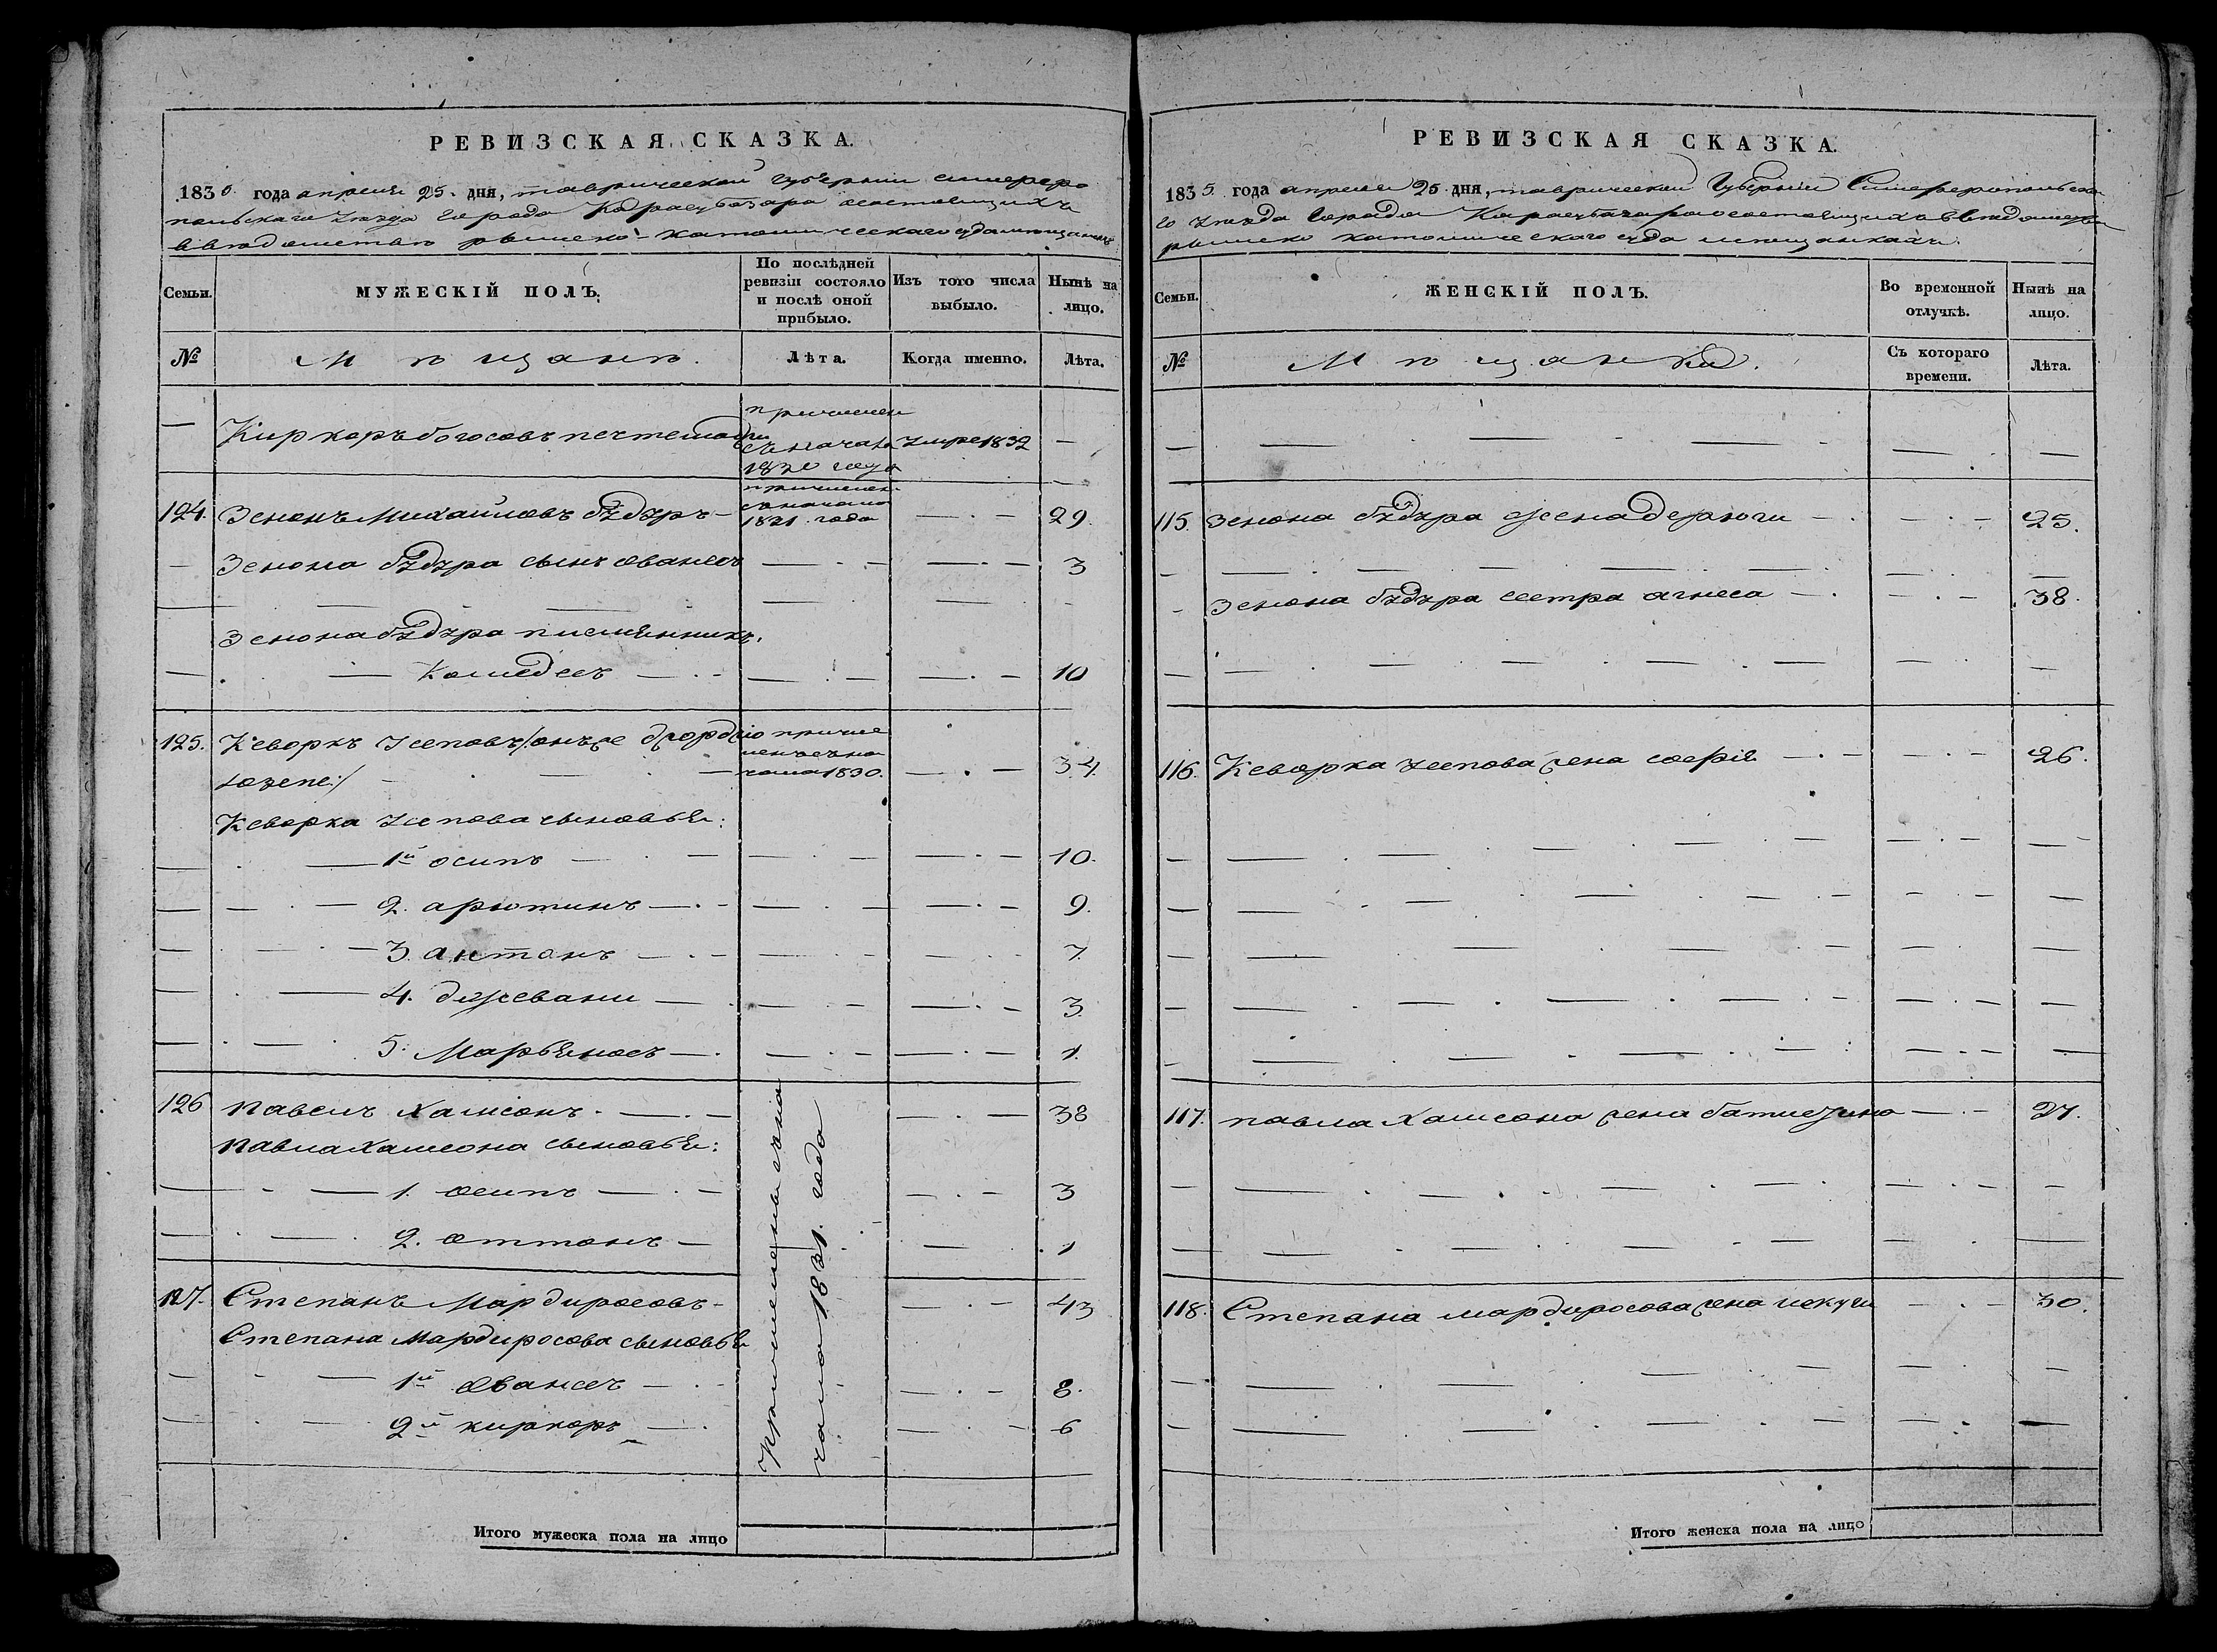 РЕВИЗСКАЯ СКАЗКА.
1835 года апреля 25. дня, таврической губернии симферо
польскаго уезда города Карасубазара состоящихъ
в ведомстве римско-католическаго суда мещанахъ
Семьи.
МУЖЕСКІЙ ПОЛЪ.
По послѣдней ревизіи состояло и послѣ оной прибыло.
Изъ того числа выбыло.
Нынѣ на лицо.
№
Мѣщанѣ.
Лѣта.
Когда именно.
Лѣта.
— Киркоръ богосовъ причислен
съ начала 1830 года умре 1832 —
124. Зенонъ Михайловъ бѣдѣръ — причислен
съ начала 1831 года — 29.
— Зенона бѣдѣра сынъ ованесъ — — 3
Зенона бѣдѣра племянникъ.
— — — — 10
125. Кеворкъ Усеповъ /: онъ же причис
ленъ съ на
чала 1830. — 34.
Кеворка Усепова сыновья:
— 1й осипъ — — 10.
— 2. арютинъ — — 9.
— 3. антонъ — — 7.
— 4. дживани — — 3.
— 5. Марьяносъ — — 1.
126 Павелъ Хамсонъ — — 38
Павла Хамсона сыновья:
— 1. осипъ — — 3
— 2. оттонъ — — 1
127. Степанъ Мардиросовъ — — 43
Степана Мардиросова сыновья
— 1й Ованесъ — — 8.
— 2й киркоръ — — 6
Причислены съ на
чала 1831. года
Итого мужеска пола на лицо
РЕВИЗСКАЯ СКАЗКА.
1835. года апреля 25 дня, таврической Губерніи Симферопольска
го уезда города Карасубазара состоящихъ в ведомстве
римско католическаго суда мещанкахъ.
Семьи.
ЖЕНСКІЙ ПОЛЪ.
Во временной отлучкѣ.
Нынѣ на лицо.
№
Мѣщанки.
Съ котораго времени.
Лѣта.
115. Зенона бѣдѣра жена — — 25.
— Зенона бѣдѣра сестра агнеса — — 38.
116. Кеворка Усепова жена софія — — 26.
117. павла Хамсона жена — — 27.
118. Степана мардиросова жена — — 30.
Итого женска пола на лицо